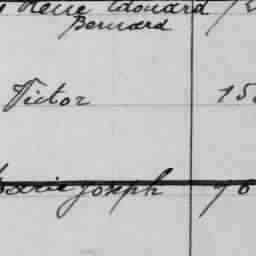 René Edouard
Bernard
Victor 15
Marie Joseph 70